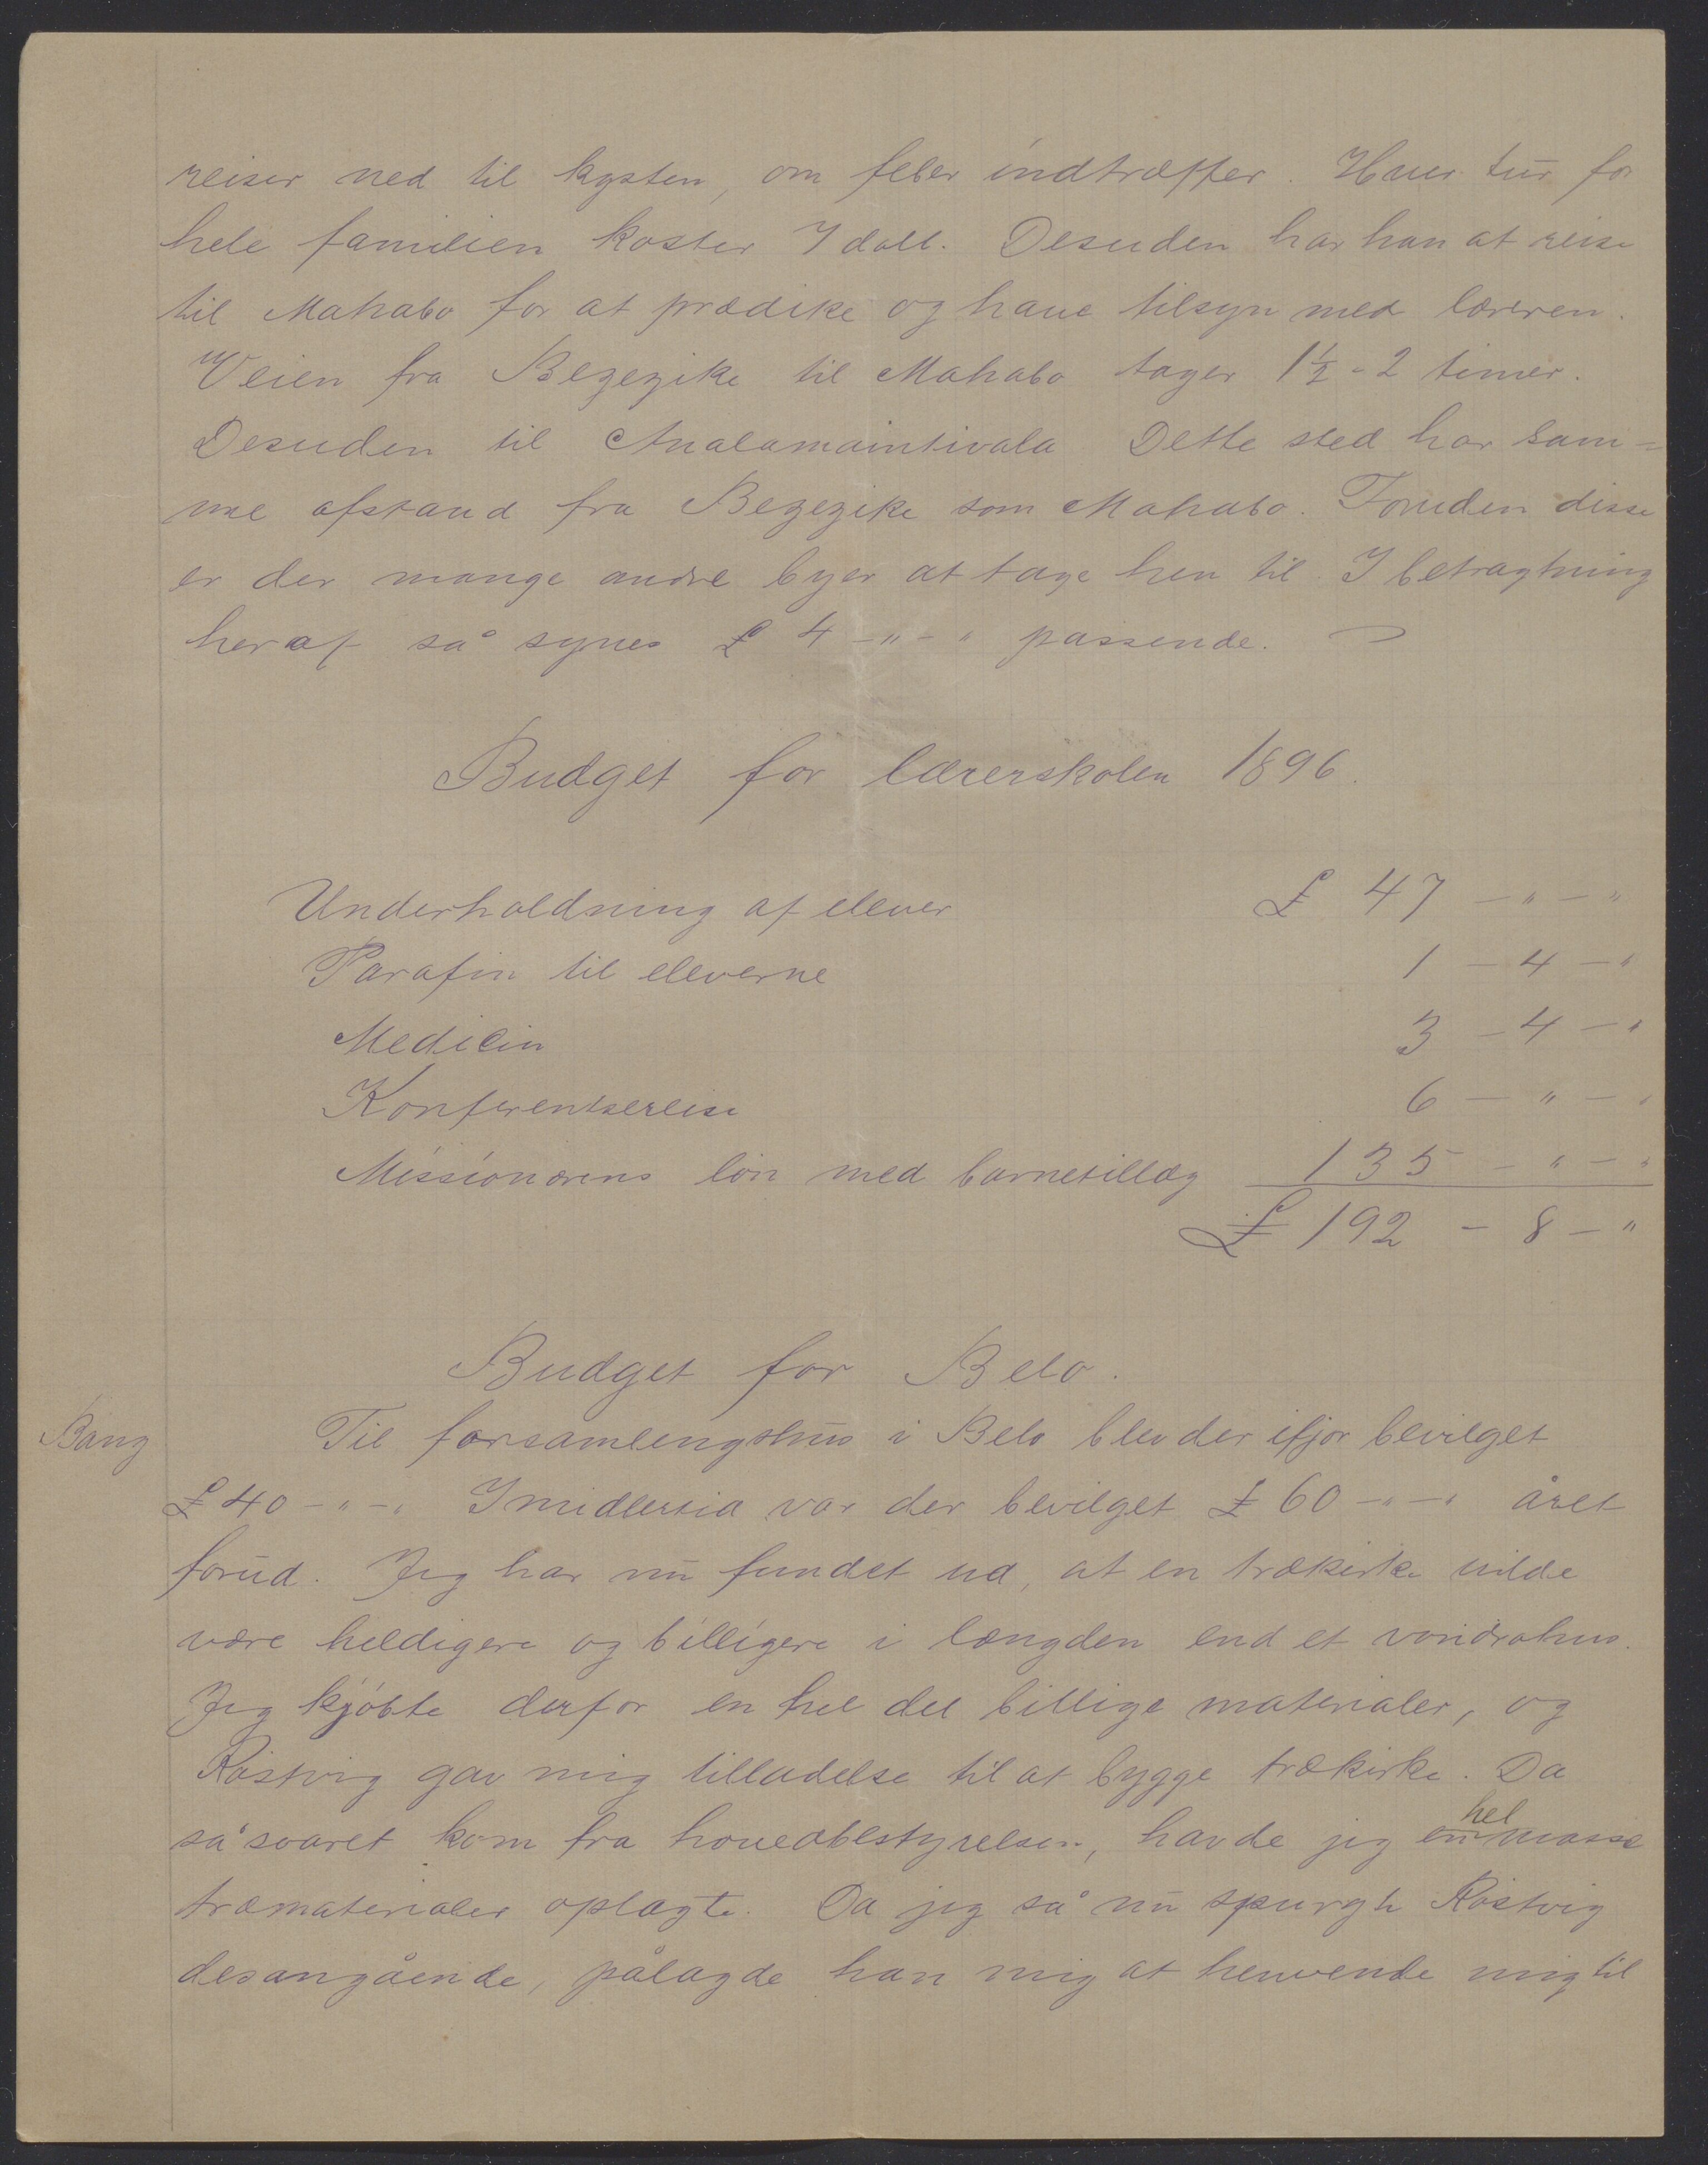 reiser ned til kysten, om feber indtræffer. Hver tur for
hele familien koster 7 doll. Desuden har han at reise
til Mahabo for at prædike og have tilsyn med læreren.
Veien fra Bezezike til Mahabo tager 1½ - 2 timer.
Desuden til Analamaintivala Dette sted har sam=
me afstand fra Bezezike som Mahabo. Foruden disse
er der mange andre byer at tage hen til. I betragtning
heraf så synes £ 4 - " - " passende.
Budget for lærerskolen 1896.
Underholdning af elever £ 47 - " - "
Parafin til eleverne 1 - 4 - "
Medicin 3 - 4 - "
Konferentsereise 6 - " - "
Missionærens løn med barnetillæg 135 - " - "
£ 192 - 8 - "
Budget for Belo.
Bang
Til forsamlingshus i Belo blev der ifjor bevilget
£ 40 - " - " Imidlertid var der bevilget £ 60 - " - " året
forud. Jeg har nu fundet ud, at en trækirke vilde
være heldigere og billigere i længden end et vondrohus.
Jeg kjøbte derfor en hel del billige materialer, og
Røstvig gav mig tilladelse til at bygge trækirke. Da
så svaret kom fra hovedbestyrelsen, havde jeg en hel masse
træmaterialer oplagte. Da jeg så nu spurgte Røstvig
desangående, pålagde han mig at henvende mig til